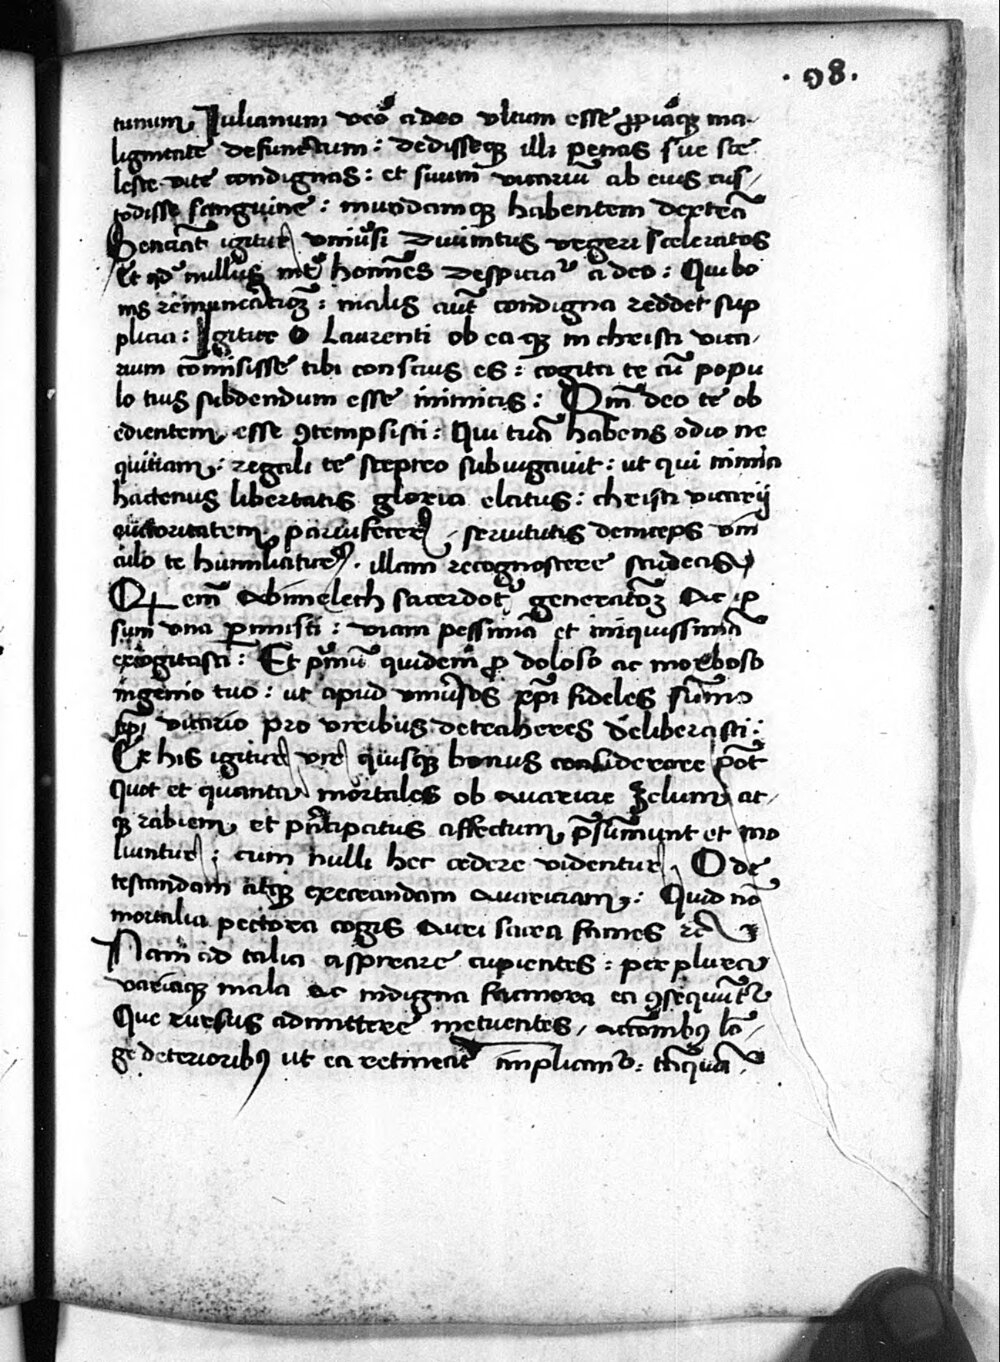 .98.
tunum, Iulianum v̄o a deo ultum esse p̄p̄iaq̃ ma-
lignitate defunctum: dedisseq̃ illi penas sue sce
leste vite condignas: et suum vicariū ab eius cus-
todisse sanguine: mundamq̃ habentem dexterā
Senciāt igitur uniūsi divinitus vegeri sceleratos
Et qd̕ nullus int̕ homines despiciat̕ a deo: Qui bo
nis remuneratioꝫ: malis aūt condigna reddet sup
plicia: Igitur O Laurenti ob ea que in christi vica-
rium cōmisisse tibi conscius es: cogita te cū popu
lo tuo subdendum esse inimicis: Qm̄ deo te ob
edientem esse ꝯtempsisti: Qui tuā habens odio ne
quitiam: regali te sceptro subiugavit: ut qui nimia
hactenus libertatis gloria elatus: christi vicarij
auctoritatem parvifeceras, servitutis deinceps vin
culo te humiliatur, illam recognoscere studeas
Quem Abimelech sacerdot̕ generatōꝫ ac ip
sum una p̱misti: viam pessimā et iniquissimā
excogitasti: Et p̄mū quidem p̱ doloso ac morboso
ingenio tuo: ut apud univ̄sos xp̄i fideles sūmo
xp̄i vicario pro viribus detraheres deliberasti:
Ex his igitur vir quisq̃ bonus considerare pōt
Quot et quanta mortales ob avaricie zelum at-
q̃ rabiem, et principatus affectum, p̄sūmunt et mo
liuntur: cum nulli hec cedere videntur, O de
testandam atq̃ execrandam avariciam,: Quid nō
mortalia pectora cogis Auri sacra fames rc̄
Nam ad talia aspirare cupientes: per plura
variaq̃ mala ac indigna facinora ea ꝯsequūt̕
Que rursus admittere metuentes, actōnibꝰ lō-
ge deterioribꝰ ut ea retineāt implicant̕: tāquā